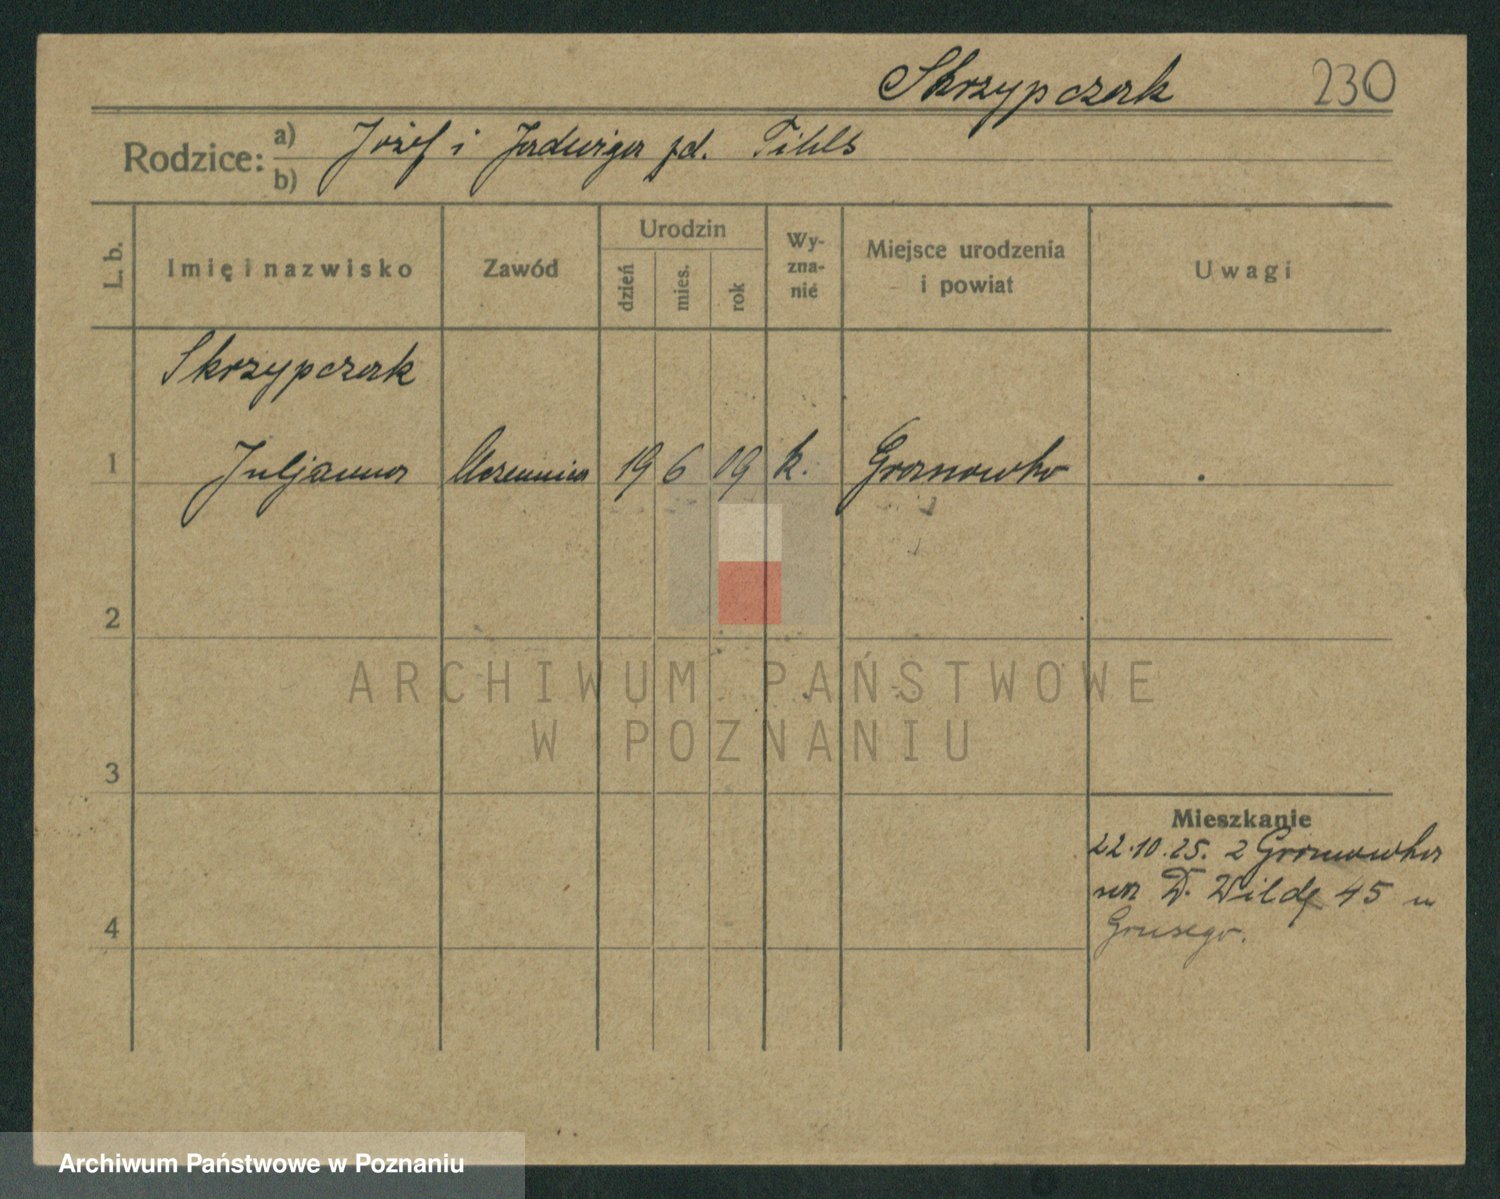 Skrzypczak 230
Rodzice:
a) Józef i Jadwiga
b)
L. b.
Imię i nazwisko
Zawód
Urodzin
dzień
mies.
rok
Wy-
zna-
nie
Miejsce urodzenia
i powiat
Uwagi
Skrzypczak
1 Juljanna Uczennica 19 6 09 k. Granowko
2
3
4
Mieszkanie
22.10.25. z Granowka
na D. Wildę 45 u
ARCHIWUM PAŃSTWOWE
W POZNANIU
Archiwum Państwowe w Poznaniu